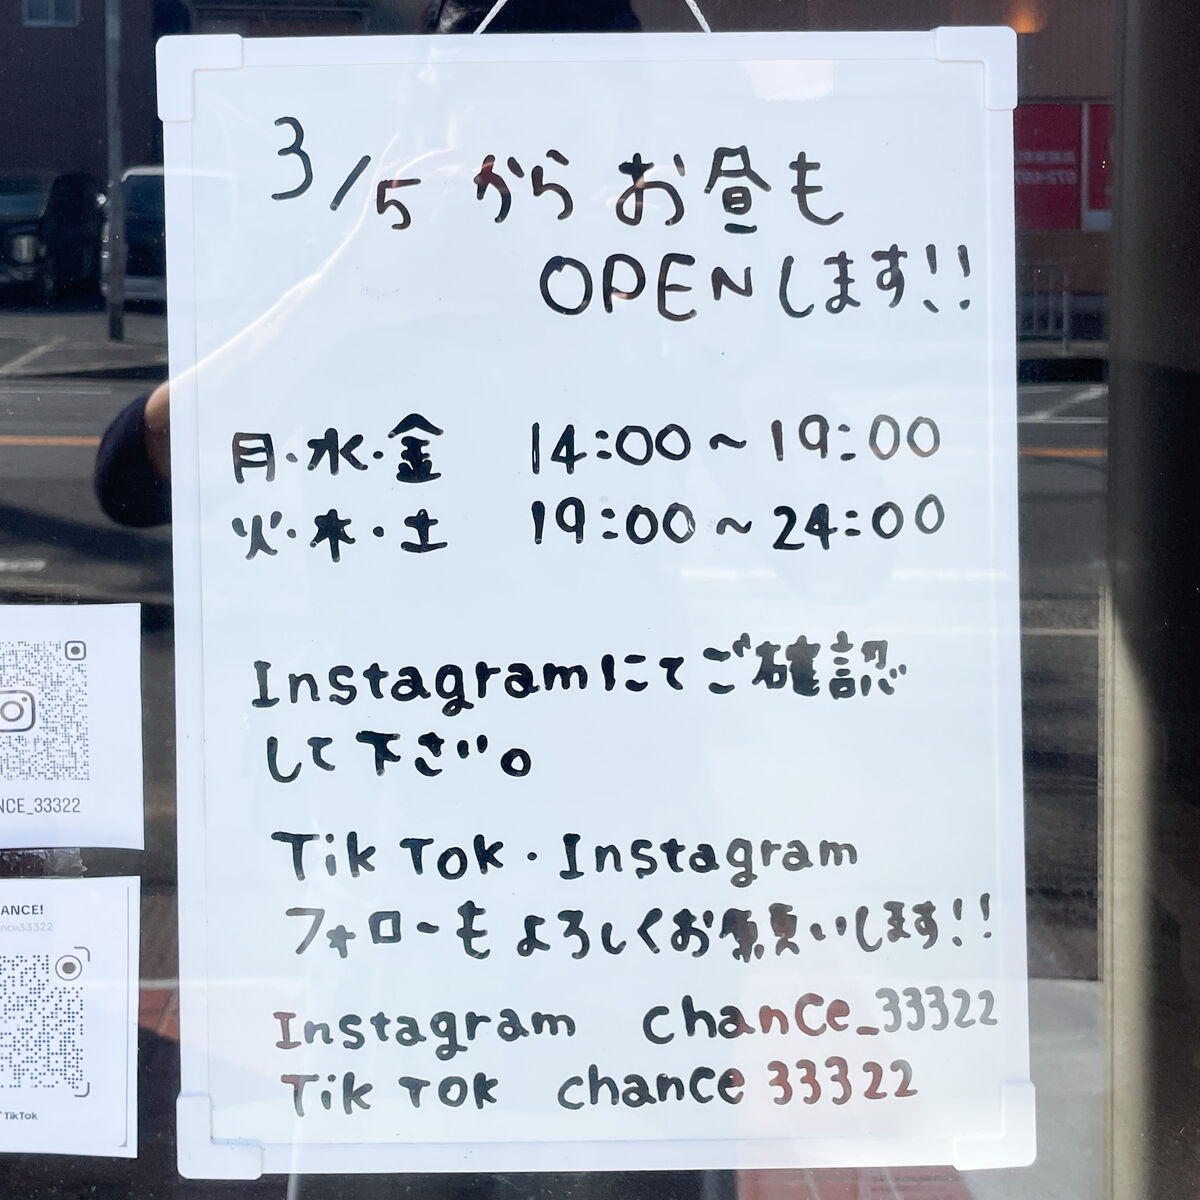 3/5からお昼も
OPENします!!
月・水・金 14:00〜19:00
火・木・土 19:00〜24:00
Instagramにてご確認
して下さい。
TikTok・Instagram
フォローもよろしくお願いします!!
Instagram chance_33322
TikTok chance33322
NCE_33322
ANCE!
nce33322
TikTok